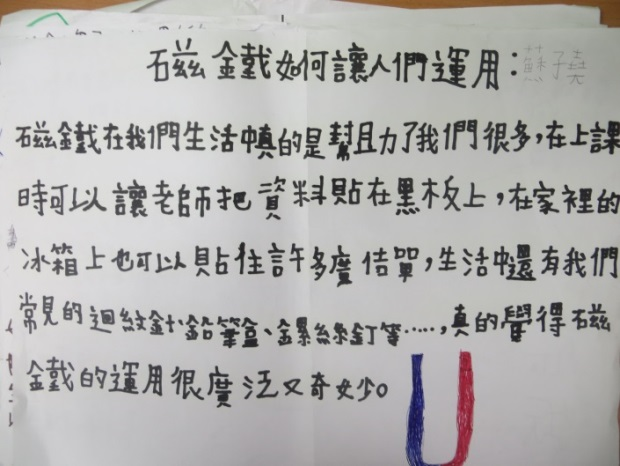 磁鐵如何讓人們運用:蘇子堯
磁鐵在我們生活中真的是幫助了我們很多,在上課
時可以讓老師把資料貼在黑板上,在家裡的
冰箱上也可以貼住許多廣佶單,生活中還有我們
常見的迴紋針、鉛筆盒、鏍絲釘等.....,真的覺得磁
鐵的運用很廣泛又奇妙。